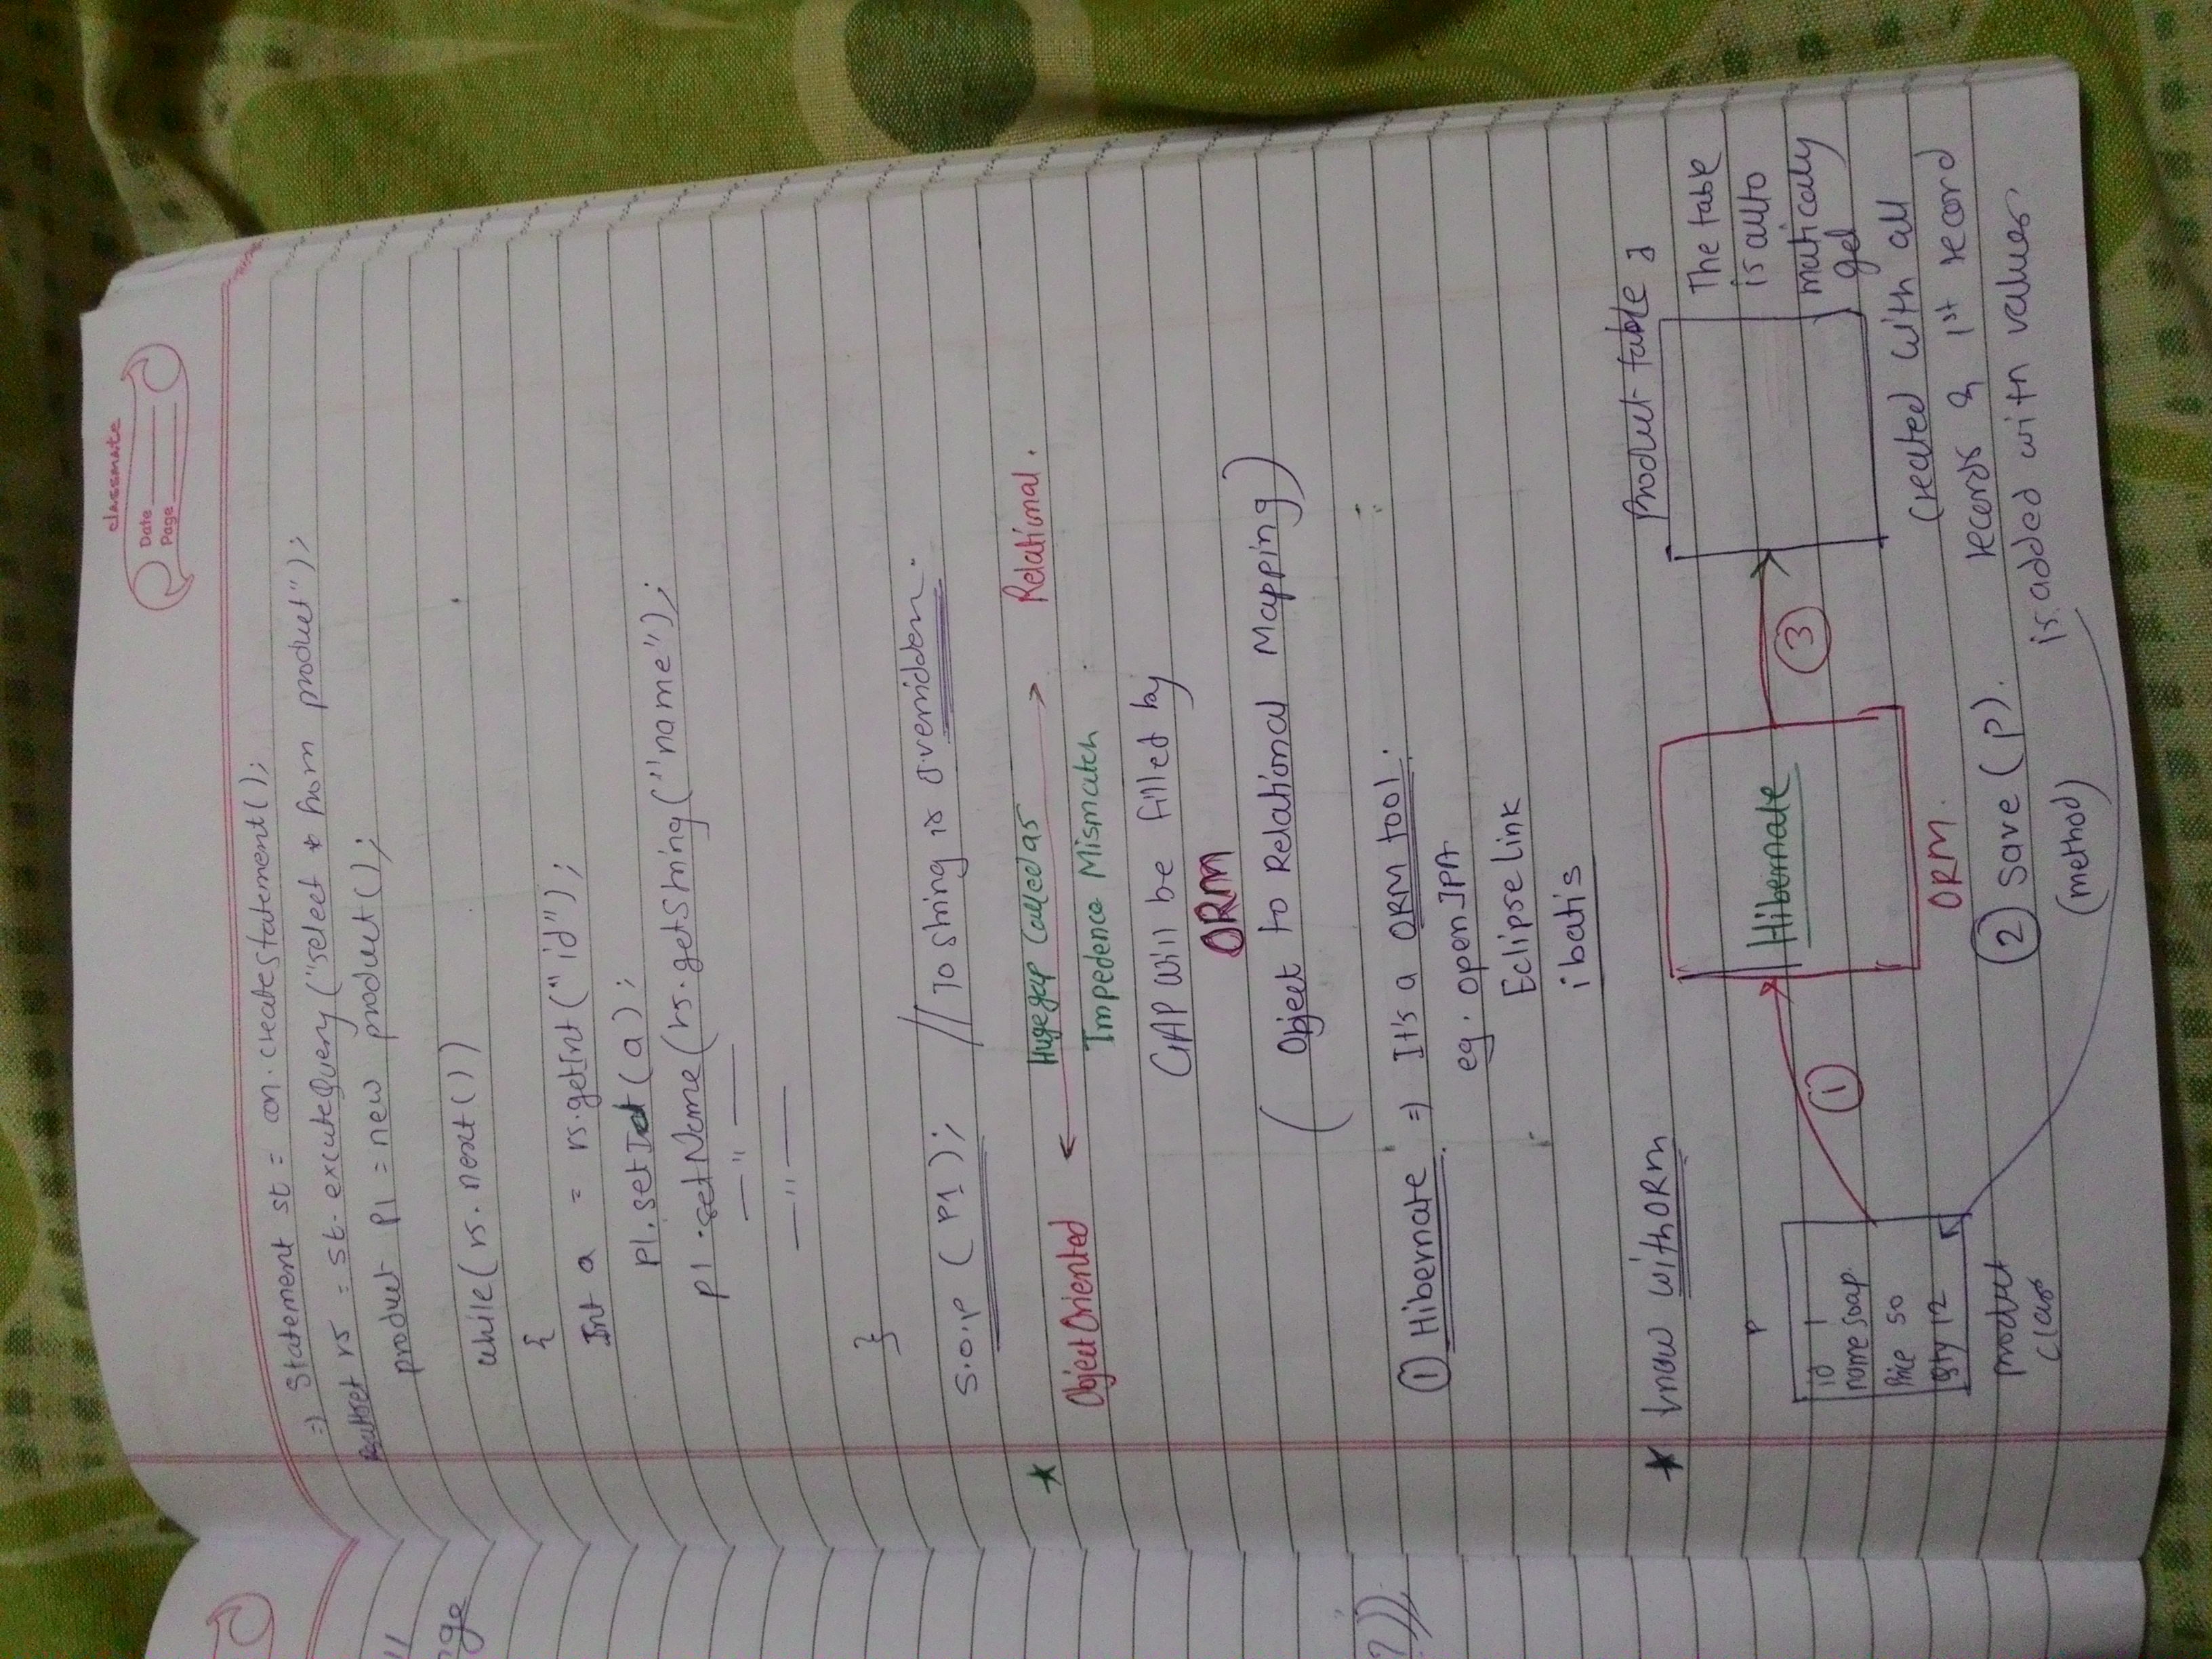 classmate
Date
Page
=) Statement st = con.createstatement();
rs = st.excuteQuery("select * from product");
product P1 = new product();
while(rs.next())
{
Int a = rs.getInt("id");
p1.setId(a);
p1.setName(rs.getString("name");
— " —
— " —
}
S.O.P (P1); // To string is overridden.
★ Object Oriented <—> Relational.
Huge gap Called as
Impedence Mismatch
GAP will be filled by
ORM
(Object to Relational Mapping)
① Hibernate =) It's a ORM tool.
eg. openJPA
Eclipse link
ibatis
★ know with ORM
P
id 1
name soap.
Price 50
qty 12
product
class
①
Hibernate
ORM.
② save(p).
(method)
③
Product table
The table
is auto
matically
get
created with all
records & 1st record
is added with values
nge
?));